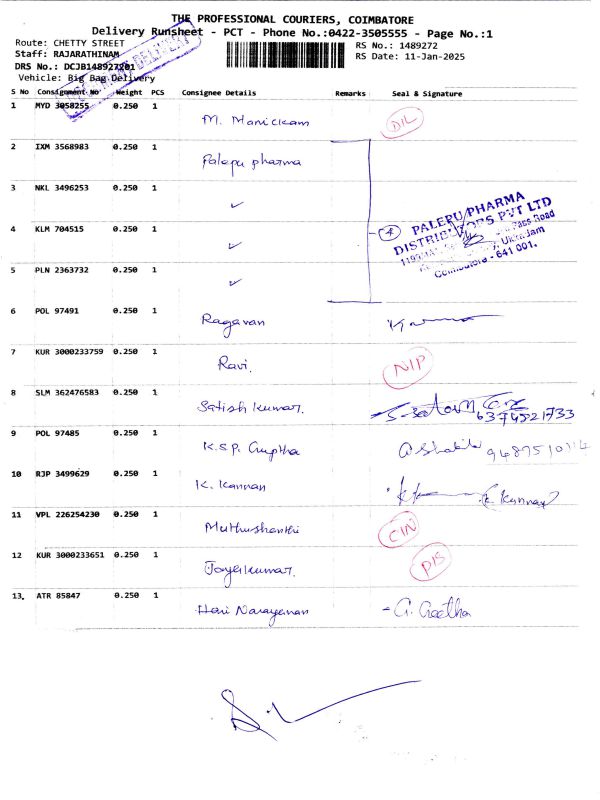 THE PROFESSIONAL COURIERS, COIMBATORE
Delivery Runsheet - PCT - Phone No.:0422-3505555 - Page No.:1
Route: CHETTY STREET
RS No.: 1489272
Staff: RAJARATHINAM
RS Date: 11-Jan-2025
DRS No.: DCJB148927201
Vehicle: Big Bag Delivery
DELIVERY
S No Consignment No Weight PCS Consignee Details Remarks Seal & Signature
1 MYD 3058255 0.250 1 M. Manickam DIL
2 IXM 3568983 0.250 1 Palepu pharma
3 NKL 3496253 0.250 1 ✓
4 KLM 704515 0.250 1 ✓ 4
PALEPU PHARMA
DISTRIBUTORS PVT LTD
Pass Road
Ukkadam
Coimbatore - 641 001.
5 PLN 2363732 0.250 1 ✓
6 POL 97491 0.250 1 Ragavan
7 KUR 3000233759 0.250 1 Ravi. NIP
8 SLM 362476583 0.250 1 Satish kumar. 6374521733
9 POL 97485 0.250 1 K.S.P. Guptha
10 RJP 3499629 0.250 1 K. Kannan K. Kannan
11 VPL 226254230 0.250 1 Muthushanthi CIN
12 KUR 3000233651 0.250 1 Jayakumar. PIS
13. ATR 85847 0.250 1 Hari Narayanan - G. Geetha